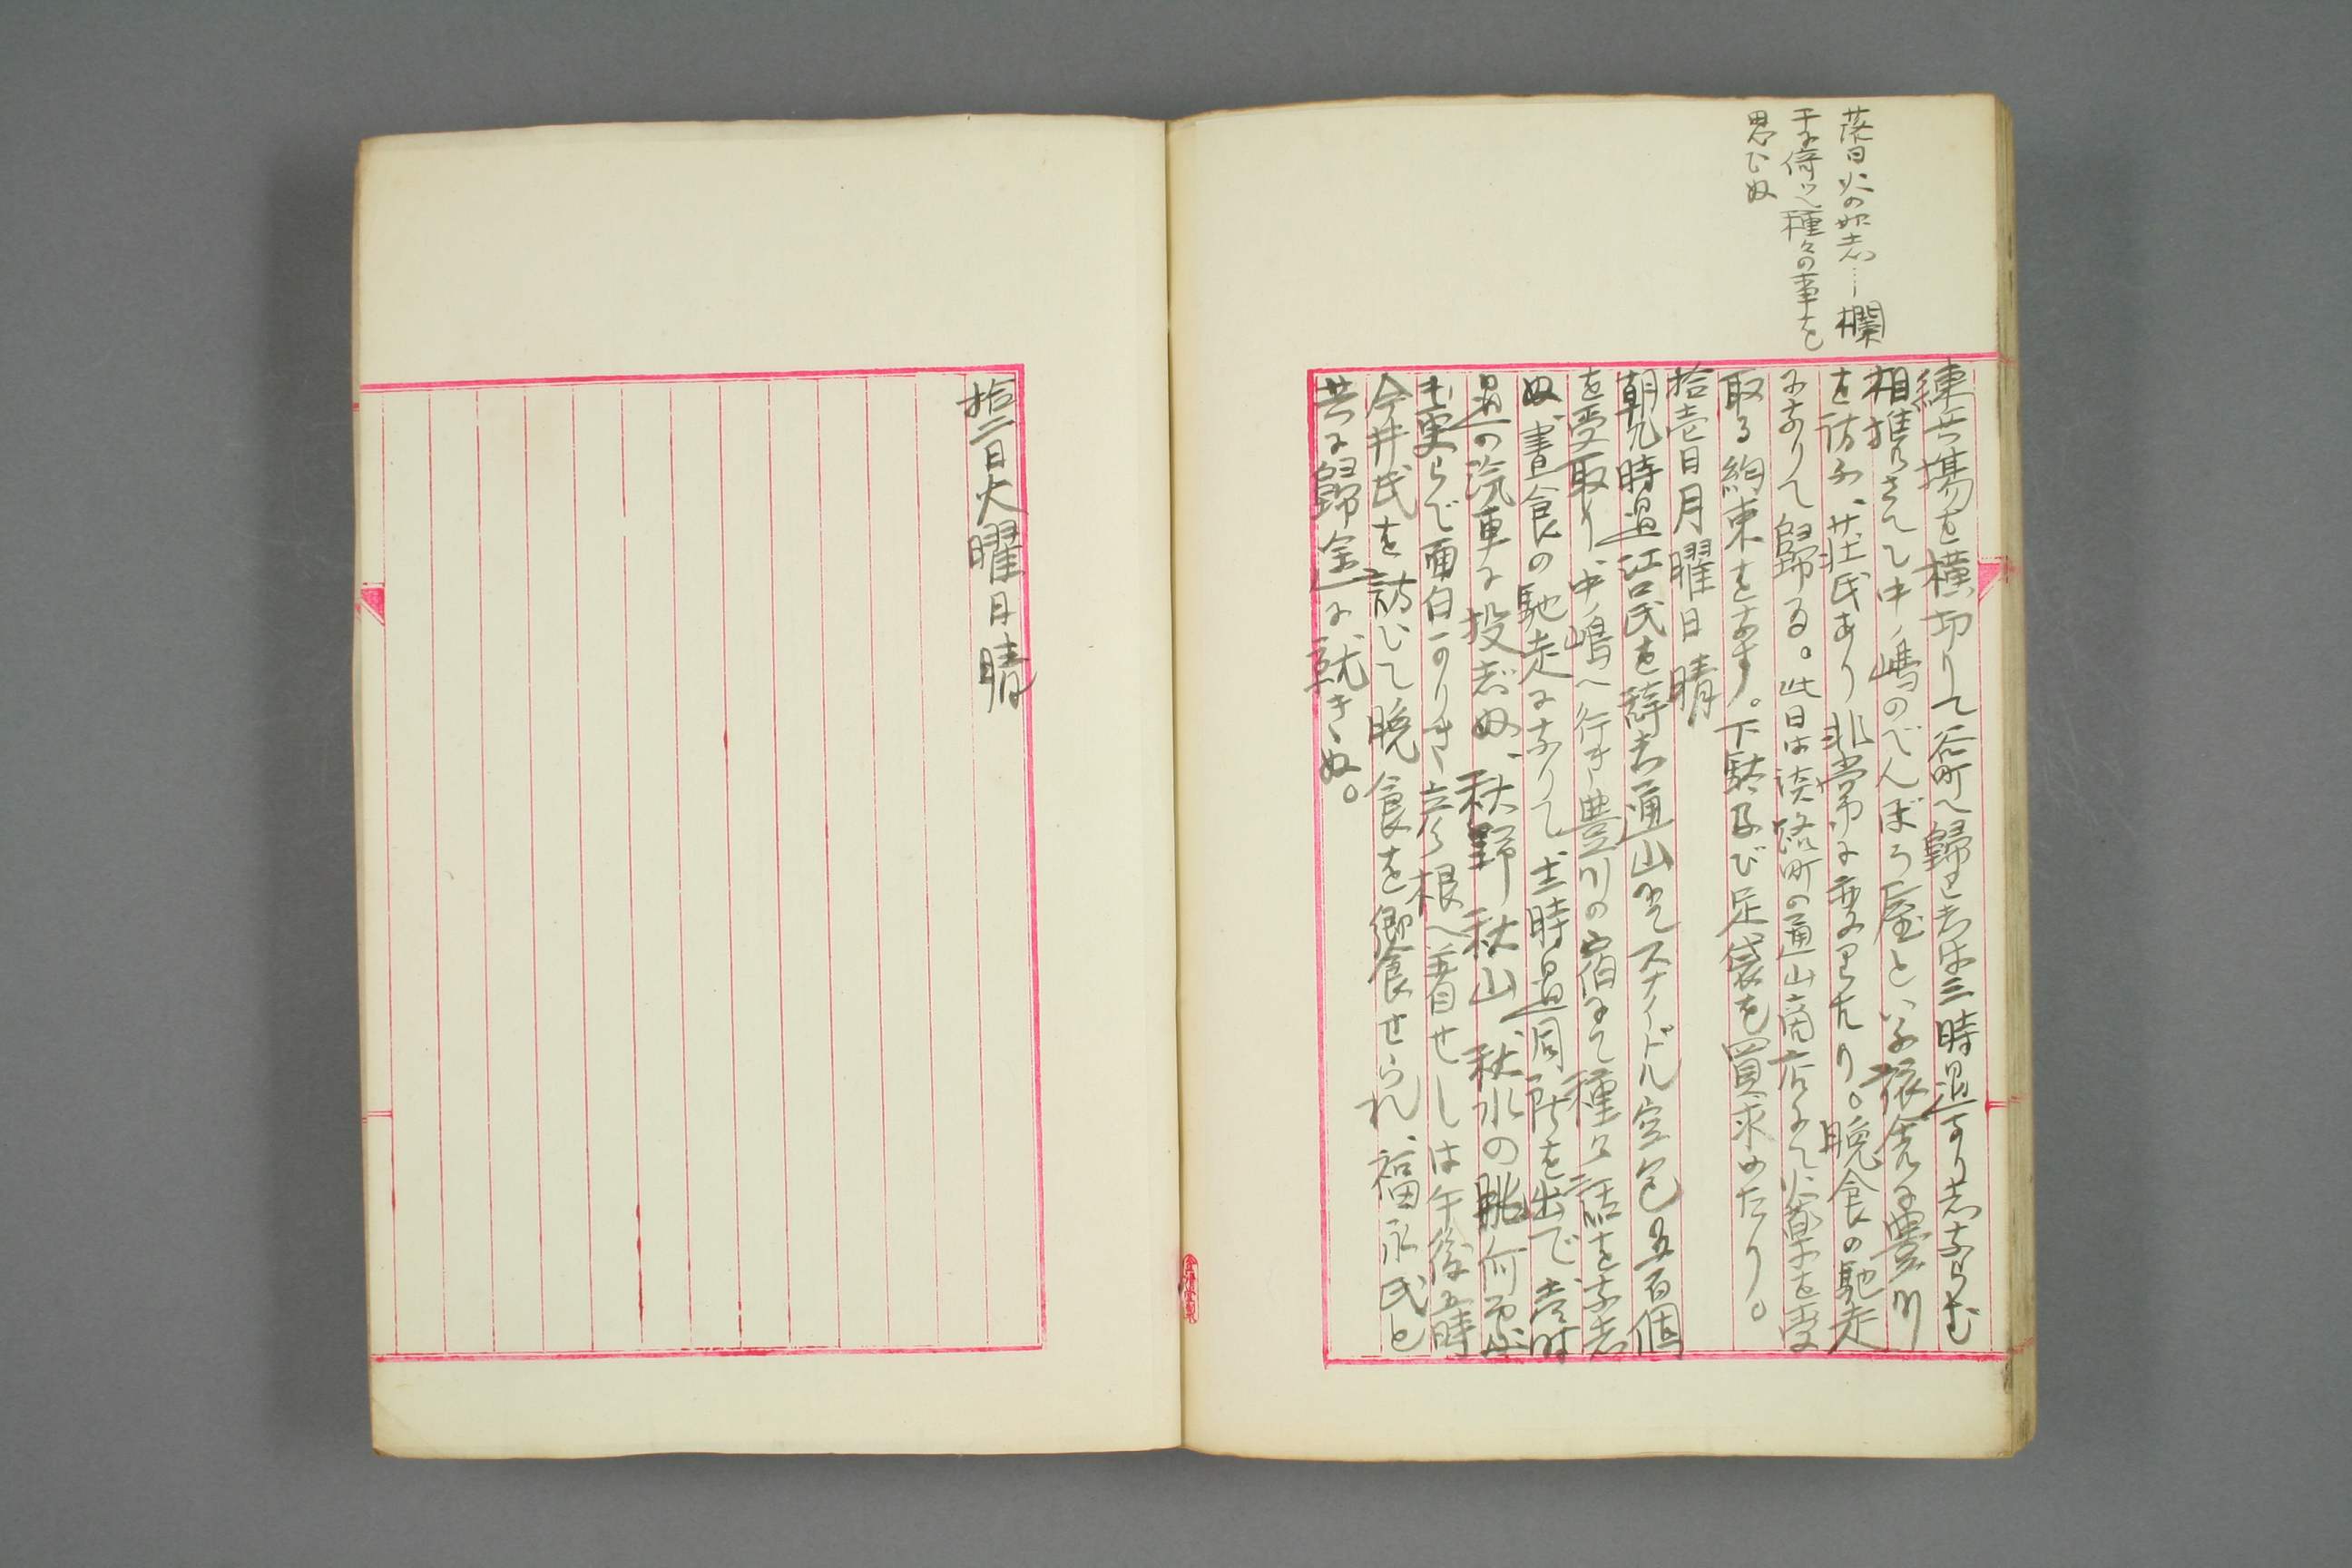 落日火の如志…欄
干に倚りて種々の事を
思ひぬ
練兵場を横切りて谷町へ歸りしは三時過なり志ならむ
相携さへて中ノ嶋のでんぼう屋といふ旅舎に豊川
を訪ふ、荘氏あり非常に変りたり。晩食の馳走
になりて歸る。此日は淡路町の通山商店にて火薬を受
取る約束をなす。下駄及び足袋を買求めたり。
拾壱日月曜日晴
朝九時過江口氏を辞志通山にてスナイドル空包五百個
を受取り、中ノ嶋へ行き豊川の宿にて種々話をなし
ぬ、昼食の馳走になりて、十二時過同所を出で、壱時
過の汽車に投志ぬ、秋野、秋山、秋水の眺何
も更らで面白かりき、彦根へ着せしは午後五時
今井氏を訪ひて、晩食を饗食せられ、福永氏と
共に歸途に就きぬ。
拾二日火曜日晴